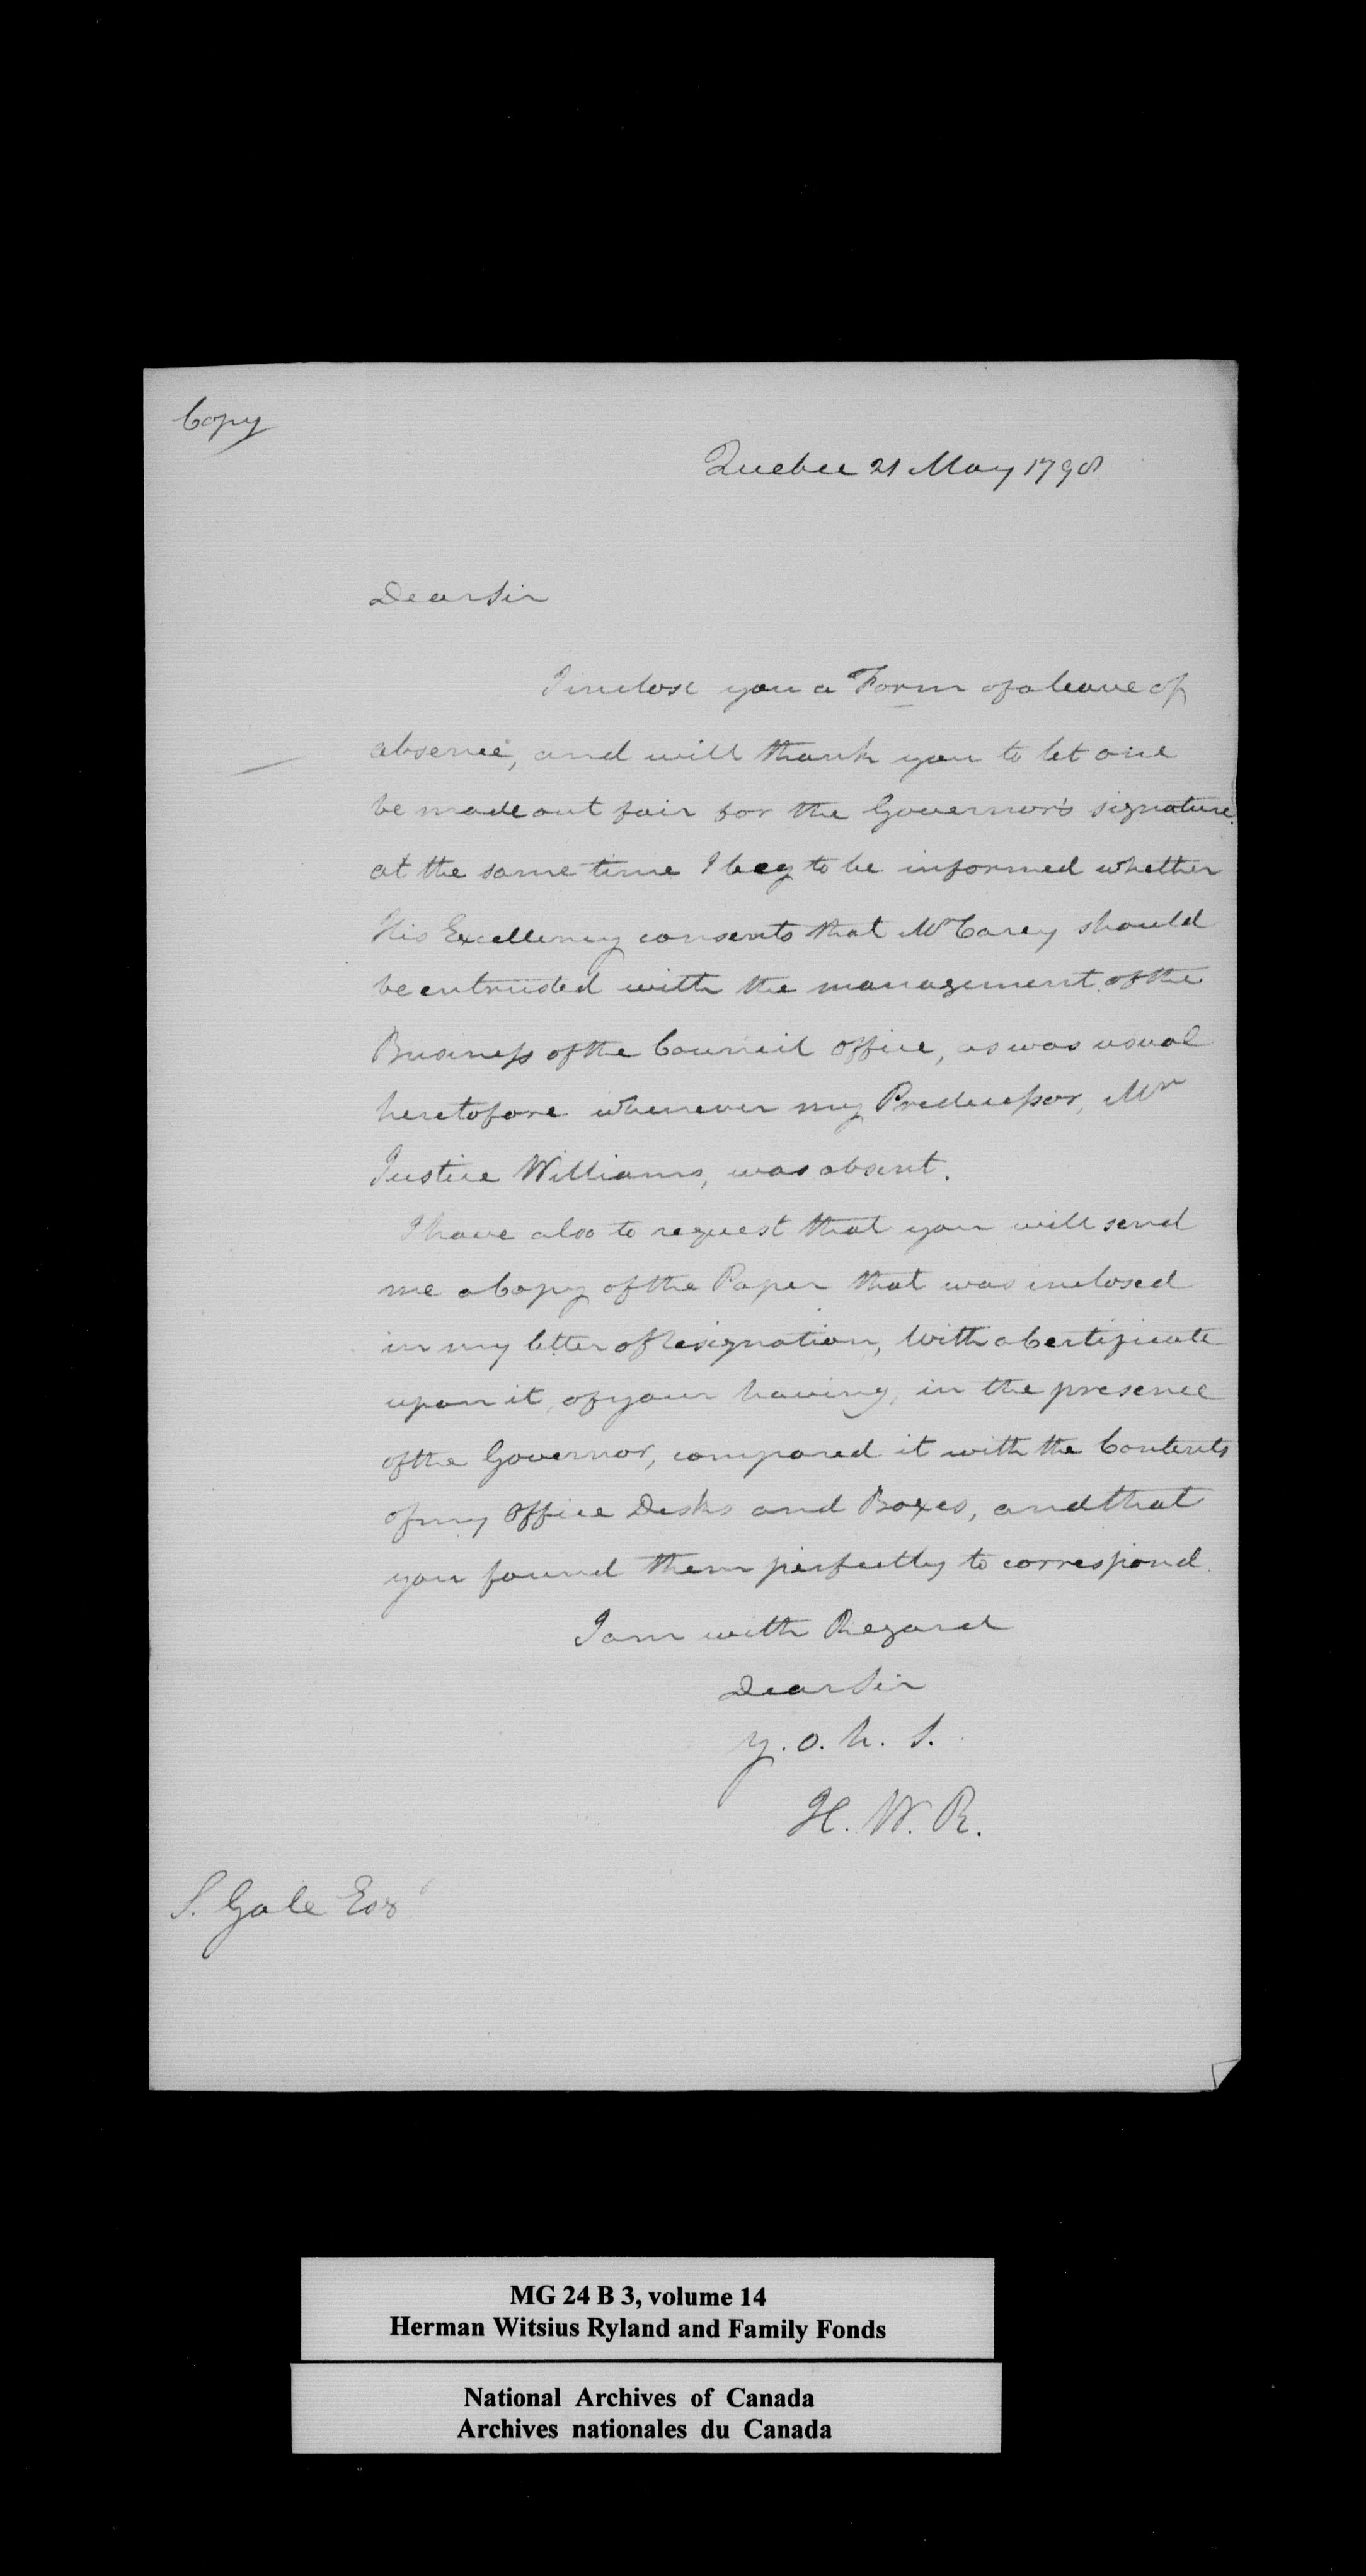 Copy
Quebec 21 May 1798
Dear Sir
I inclose you a Form of a leave of
absence, and will thank you to let one
be made out fair for the Governor's signature.
at the same time I beg to be informed whether
His Excellency consents that Mr Carey should
be entrusted with the management of the
Business of the Council office, as was usual
heretofore whenever my Predecessor, Mr
Justice Williams, was absent.
I have also to request that you will send
me a Copy of the Paper that was inclosed
in my letter of resignation, with a Certificate
upon it, of your having, in the presence
of the Governor, compared it with the Contents
of my Office Desks and Boxes, and that
you found them perfectly to correspond.
I am with Regard
Dear Sir
Y. o. h. S.
H. W. R.
S. Gale Esqr
MG 24 B 3, volume 14
Herman Witsius Ryland and Family Fonds
National Archives of Canada
Archives nationales du Canada